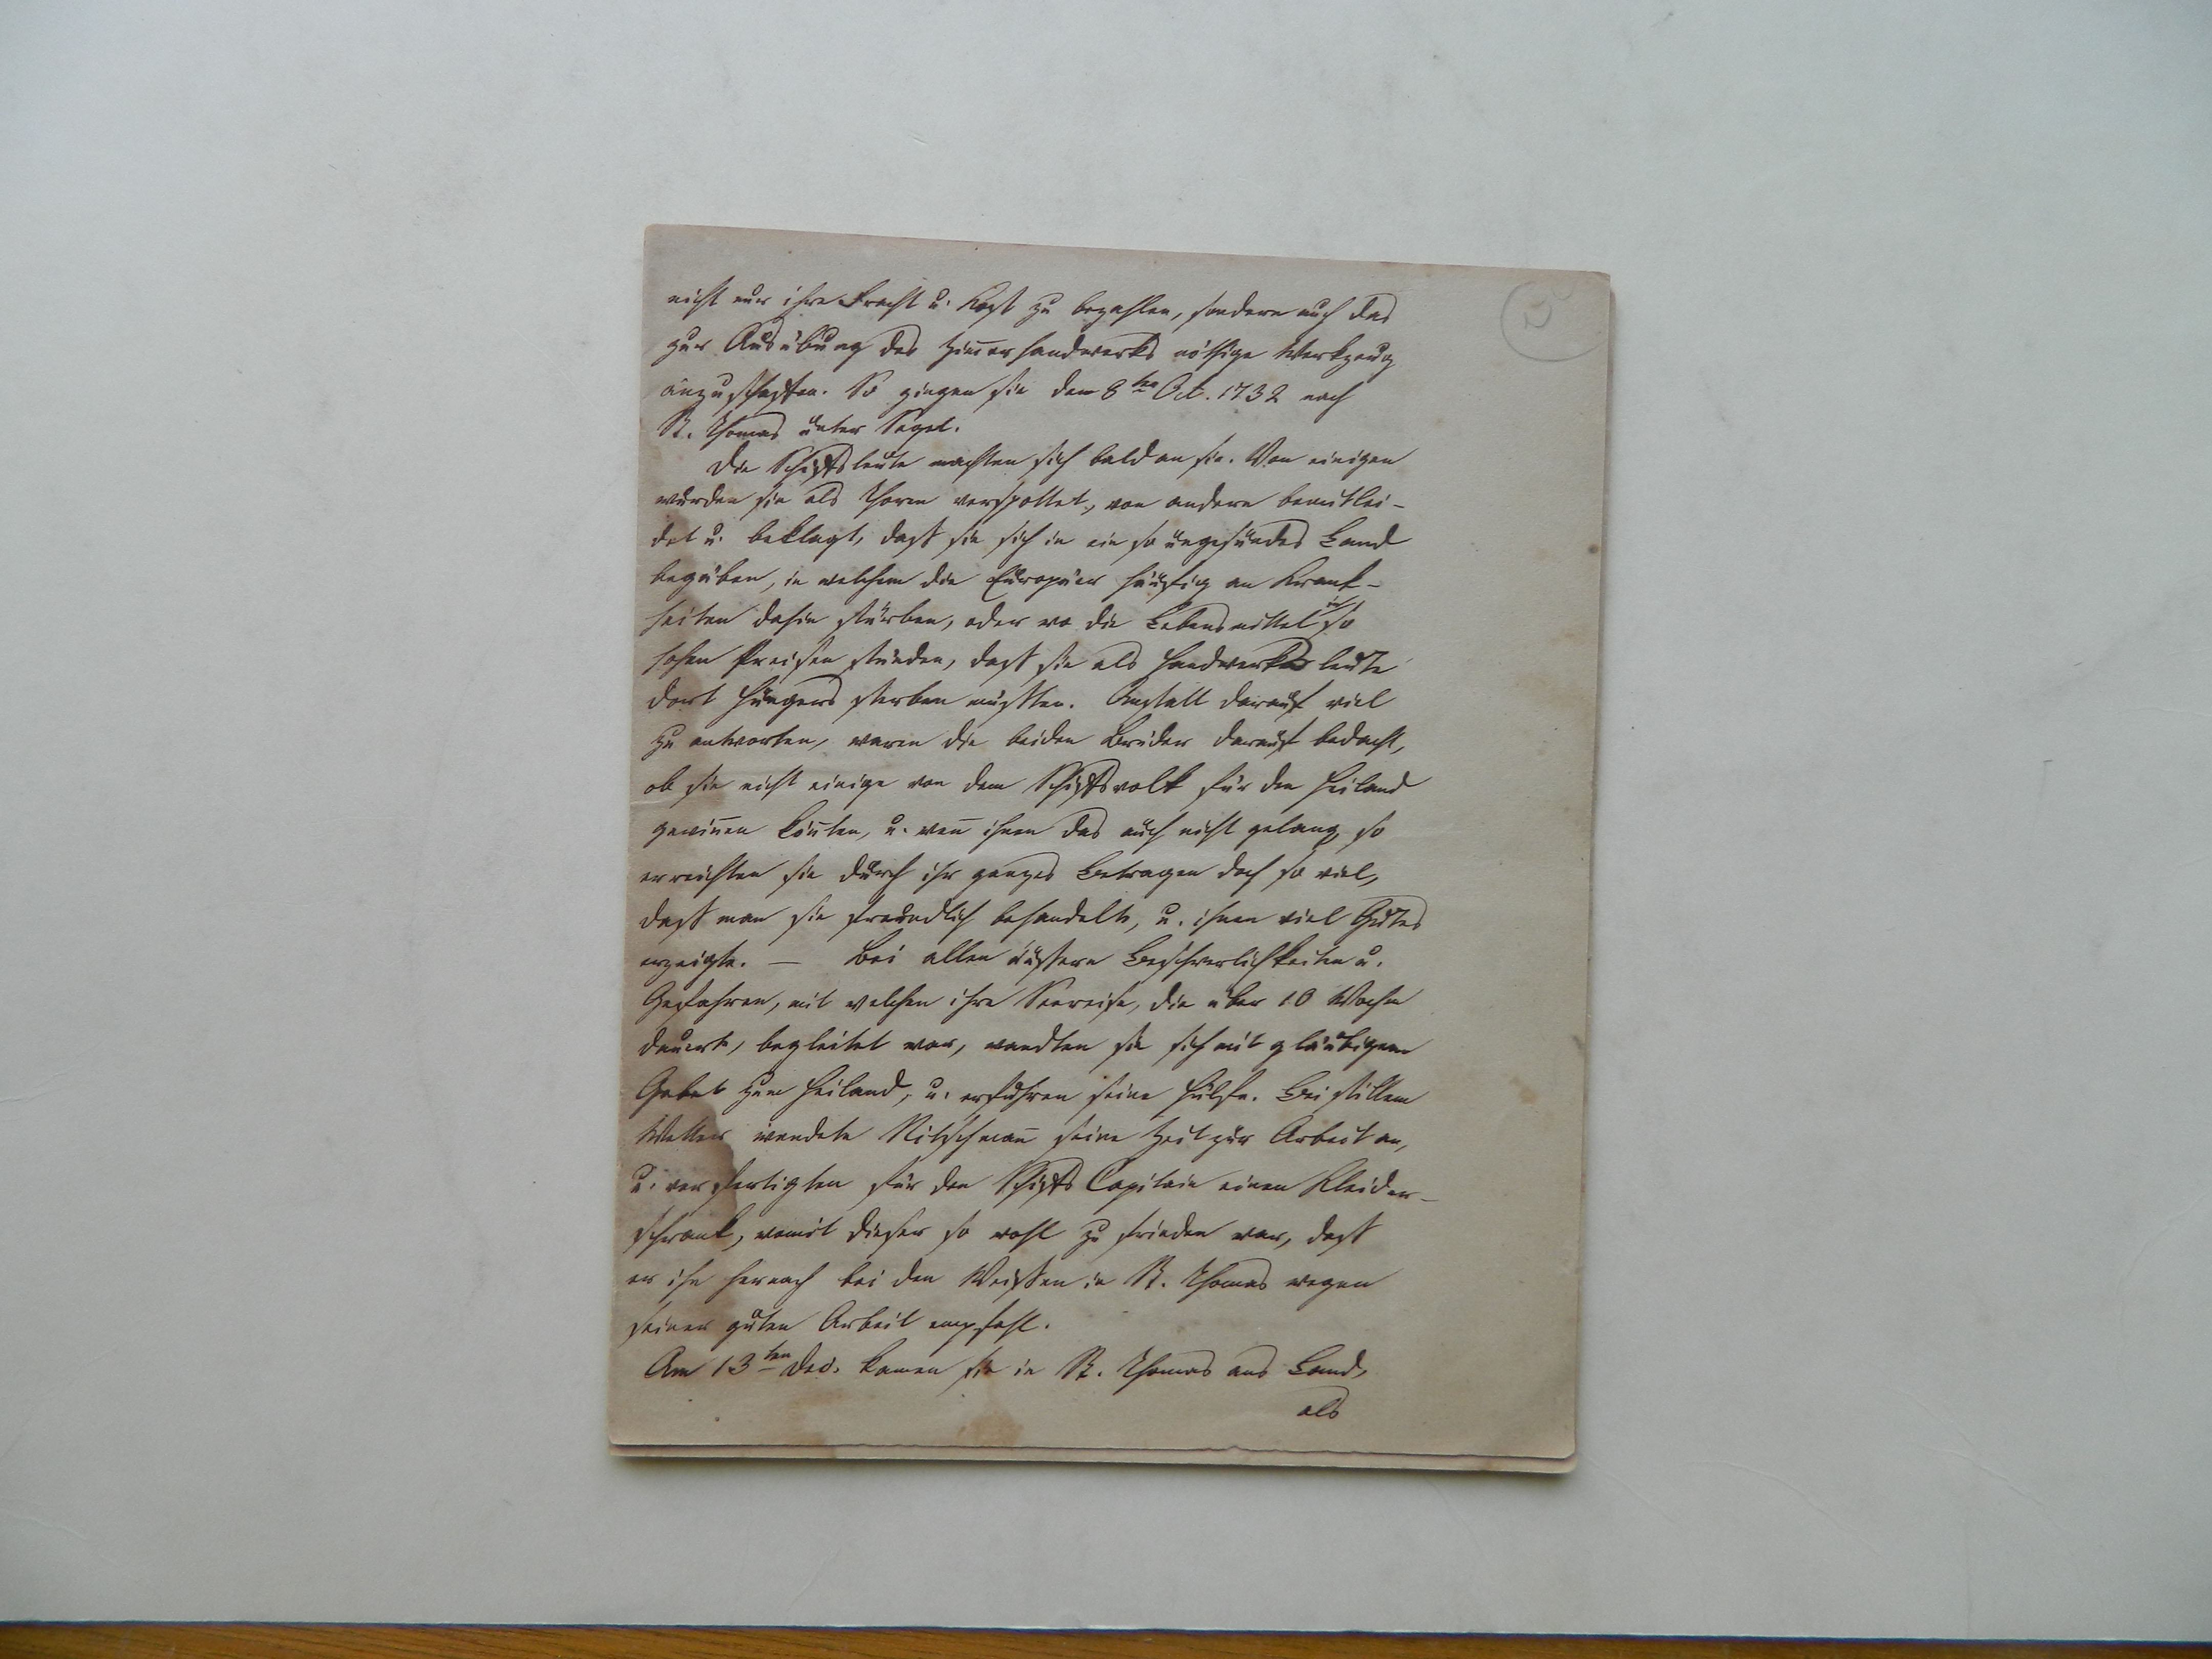 nicht nur ihre Fracht u. Kost zu bezahlen, sondern auch das
zur Ausübung des Zim̅erhandwerks nöthige Werkzeug
anzuschaffen. So gingen sie den 8ten Oct. 1732 nach
St. Thomas unter Segel.
Die Schiffsleute machten sich bald an sie. Von einigen
wurden sie als Thoren verspottet, von andern bemitlei-
det u. beklagt, daß sie sich in ein so ungesundes Land
begäben, in welchem die Europäer häufig an Krank-
heiten dahin stürben, oder wo die Lebensmittel in so
hohen Preisen stünden, daß sie als Handwerksleute
dort Hungers sterben müßten. Anstatt darauf viel
zu antworten, waren die beiden Brüder darauf bedacht,
ob sie nicht einige von dem Schiffsvolk für den Heiland
gewin̅en kön̅ten, u. wen̅ ihnen das auch nicht gelang, so
erreichten sie durch ihr ganzes Betragen doch so viel,
daß man sie freundlich behandelte, u. ihnen viel Gutes
erzeigte. — Bei allen äußern Beschwerlichkeiten u.
Gefahren, mit welchen ihre Seereise, die über 10 Wochen
dauerte, begleitet war, wandten sie sich mit gläubigem
Gebet zum Heiland, u. erfuhren seine Hülfe. Bei stillem
Wetter wendete Nitschman̅ seine Zeit zur Arbeit an,
u. verfertigten für den Schiffs Capitain einen Kleider-
schrank, womit dieser so wohl zu frieden war, daß
er ihn hernach bei den Weißen in St. Thomas wegen
seiner guten Arbeit empfahl.
Am 13ten Dec. kamen sie in St. Thomas ans Land,
als